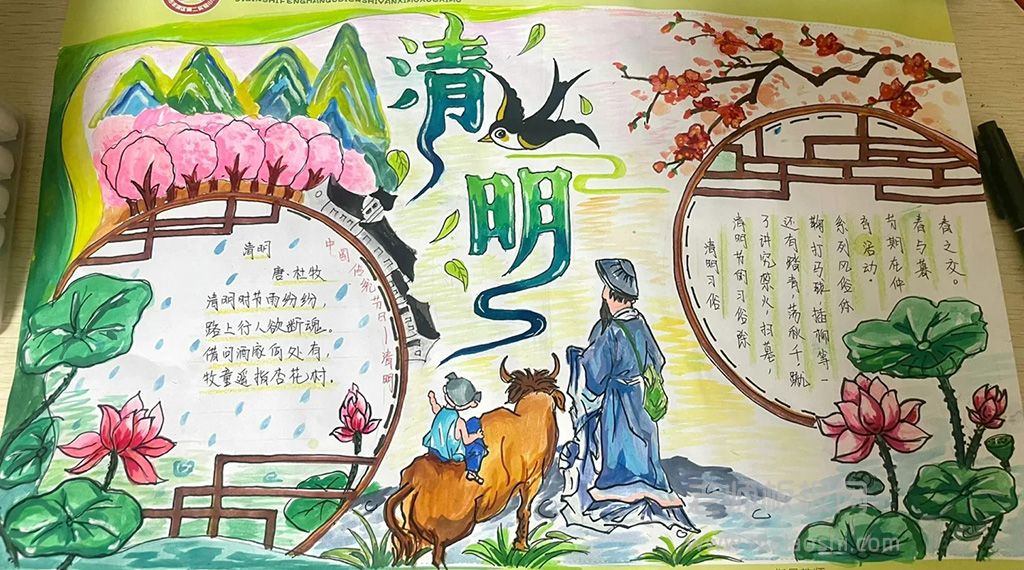 清明
清明
唐·杜牧
清明时节雨纷纷,
路上行人欲断魂。
借问酒家何处有,
牧童遥指杏花村.
中国传统节日——清明
清明习俗
清明节的习俗除
了讲究禁火,扫墓,
还有踏青,荡秋千,蹴
鞠打马球,插柳等一
系列风俗体
育活动.
节期在仲
春与暮
春之交。